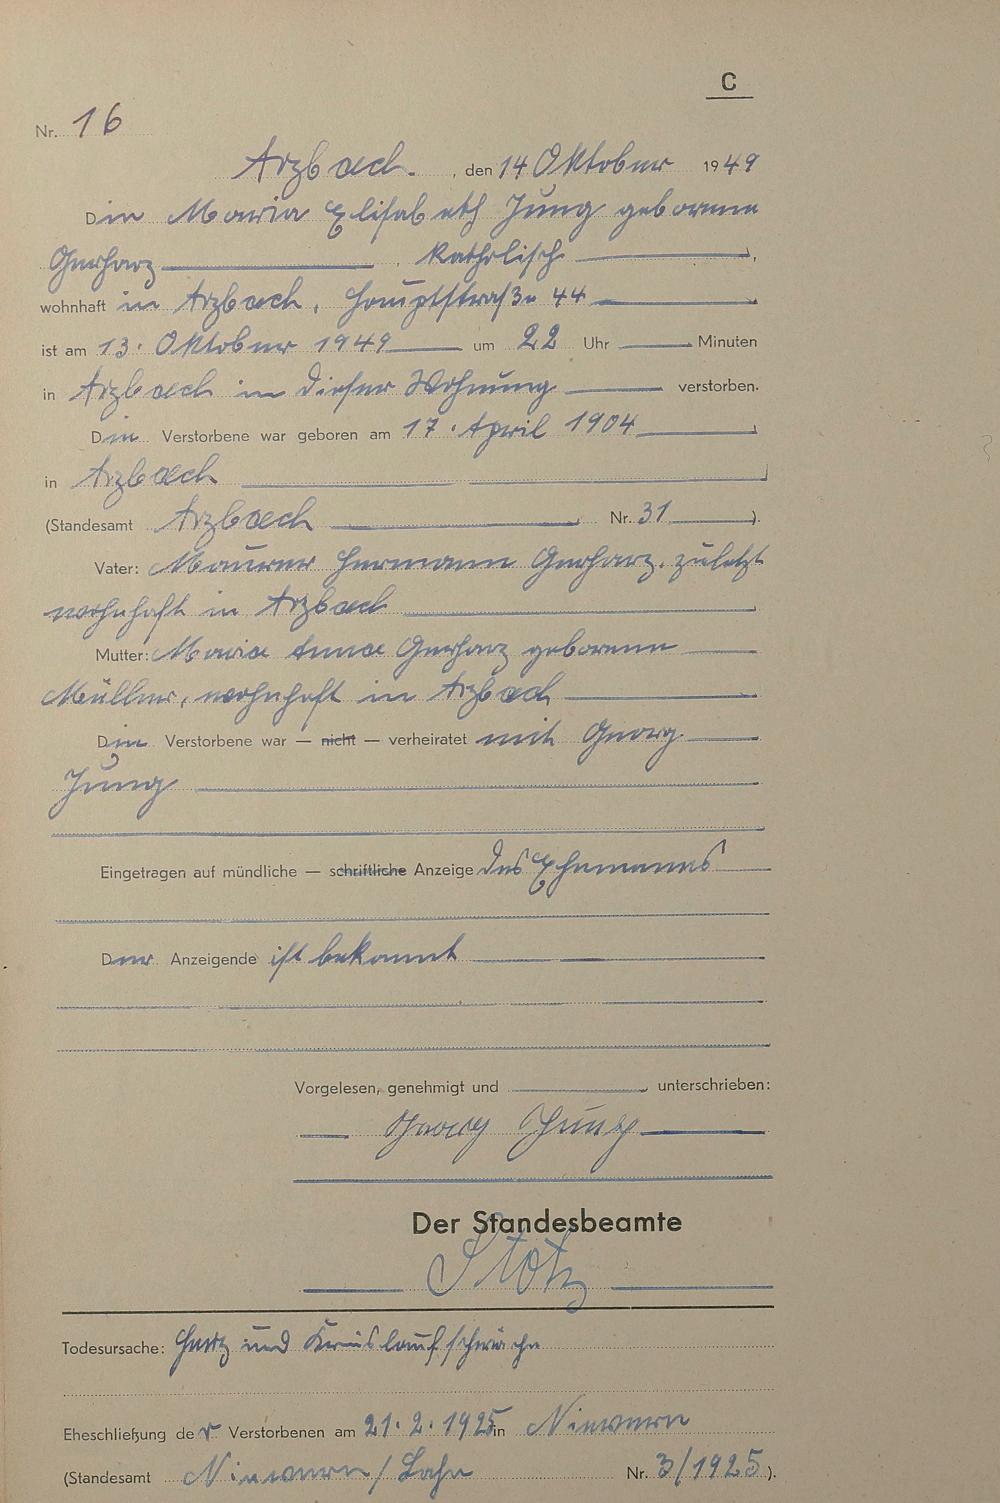 C
Nr. 16
Arzbach, den 14 Oktober 1949
Die Maria Elisabeth Jung geborene
Gerharz, katholisch,
wohnhaft in Arzbach, Hauptstraße 44
ist am 13. Oktober 1949 um 22 Uhr Minuten
in Arzbach in dieser Wohnung verstorben.
Die Verstorbene war geboren am 17. April 1904
in Arzbach
(Standesamt Arzbach Nr. 31).
Vater: Maurer Hermann Gerharz, zuletzt
wohnhaft in Arzbach
Mutter: Maria Anna Gerharz geborene
Müller, wohnhaft in Arzbach
Die Verstorbene war — nicht — verheiratet mit Georg
Jung
Eingetragen auf mündliche — schriftliche Anzeige des Ehemannes
Der Anzeigende ist bekannt
Vorgelesen, genehmigt und unterschrieben:
Georg Jung
Der Standesbeamte
Stotz
Todesursache: Herz und Kreislaufschwäche
Eheschließung der Verstorbenen am 21.2.1925 in Nievern
(Standesamt Nievern/Lahn Nr. 3/1925).